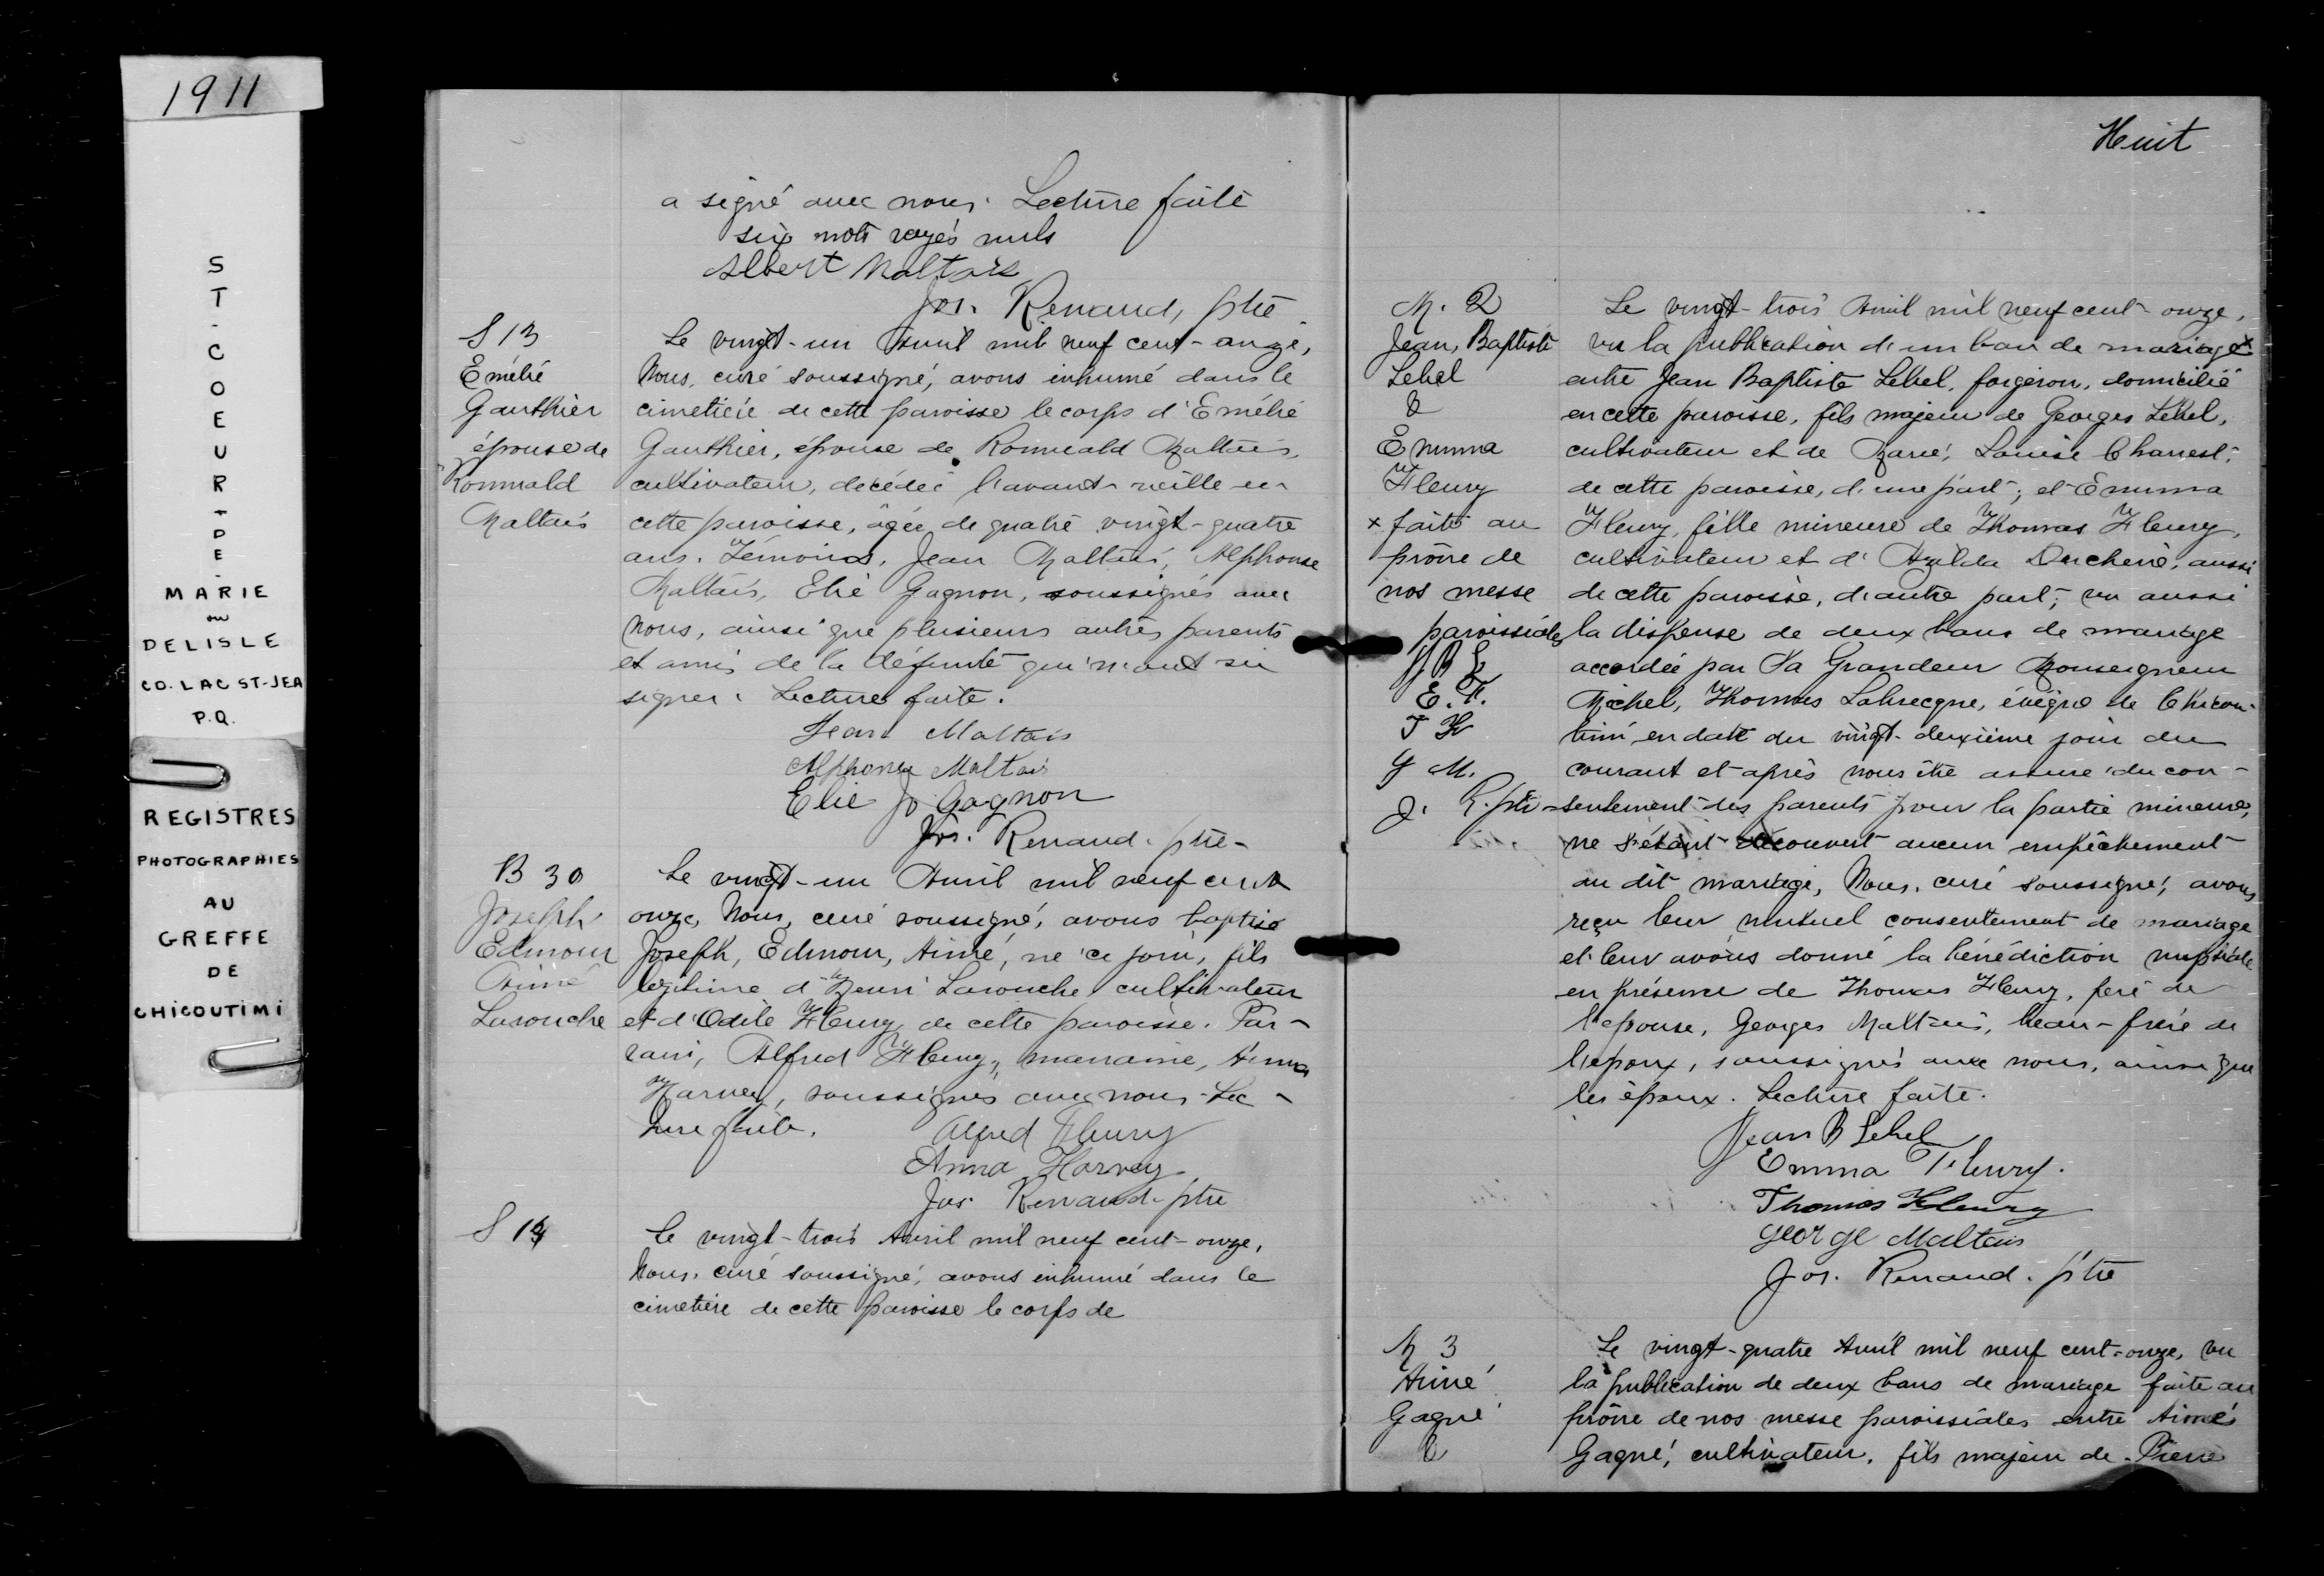 1911
ST-COEUR-DE-
MARIE
ou
DELISLE
CO. LAC ST-JEA
P.Q.
REGISTRES
PHOTOGRAPHIES
AU
GREFFE
DE
CHICOUTIMI
a signé avec nous. Lecture faite
six mots rayés nuls
Albert Maltais
Jos. Renaud, ptre
S 13
Emélie
Gauthier
épouse de
Romuald
Maltais
Le vingt-un Avril mil neuf cent-onze,
Nous, curé soussigné, avons inhumé dans le
cimetière de cette paroisse le corps d'Emélie
Gauthier, épouse de Romuald Maltais,
cultivateur, décédée l'avant-veille en
cette paroisse, âgée de quatre vingt-quatre
ans. Témoins, Jean Maltais, Alphonse
Maltais, Elie Gagnon, soussignés avec
nous, ainsi que plusieurs autres parents
et amis de la défunte qui n'ont su
signer. Lecture faite.
Jean Maltais
Alphonse Maltais
Elie Jo Gagnon
Jos. Renaud. ptre-
B 30
Joseph
Edmour
Aimé
Larouche
Le vingt-un Avril mil neuf cent
onze, Nous, curé soussigné, avons baptisé
Joseph, Edmour, Aimé, né ce jour, fils
légitime d'Henri Larouche cultivateur
et d'Odile Fleury de cette paroisse. Par-
rain, Alfred Fleury, marraine, Anna
Harvey, soussignés avec nous. Lec-
ture faite.
Alfred Fleury
Anna Harvey
Jos Renaud. ptre
S 14
Le vingt-trois Avril mil neuf cent-onze,
Nous, curé soussigné, avons inhumé dans le
cimetière de cette paroisse le corps de
Huit
M. 2
Jean, Baptiste
Lebel
&
Emma
Fleury
x faite au
prône de
nos messe
paroissiales
J B L
E. F.
T F
G M.
J. R. ptre
Le vingt-trois Avril mil neuf cent-onze,
vu la publication d'un ban de mariage x
entre Jean Baptiste Lebel, forgeron, domicilié
en cette paroisse, fils majeur de Georges Lebel,
cultivateur et de Marie, Louise Charest,
de cette paroisse, d'une part; et Emma
Fleury, fille mineure de Thomas Fleury,
cultivateur et d'Azilda Duchene, aussi
de cette paroisse, d'autre part; vu aussi
la dispense de deux bans de mariage
accordée par Sa Grandeur Monseigneur
Michel, Thomas Labrecque, évêque de Chicou-
timi en date du vingt-deuxième jour du
courant et après nous être assuré du con-
sentement des parents pour la partie mineure,
ne s'étant découvert aucun empêchement
au dit mariage, Nous, curé soussigné, avons
reçu leur mutuel consentement de mariage
et leur avons donné la bénédiction nuptiale
en présence de Thomas Fleury, père de
l'épouse, Georges Maltais, beau-frère de
l'époux, soussignés avec nous, ainsi que
les époux. Lecture faite.
Jean B Lebel
Emma Fleury.
Thomas Fleury
george Maltais
Jos. Renaud. ptre
M 3
Aimé
Gagné
&
Le vingt-quatre Avril mil neuf cent-onze, vu
la publication de deux bans de mariage faite au
prône de nos messe paroissiales entre Aimé
Gagné, cultivateur, fils majeur de Pierre